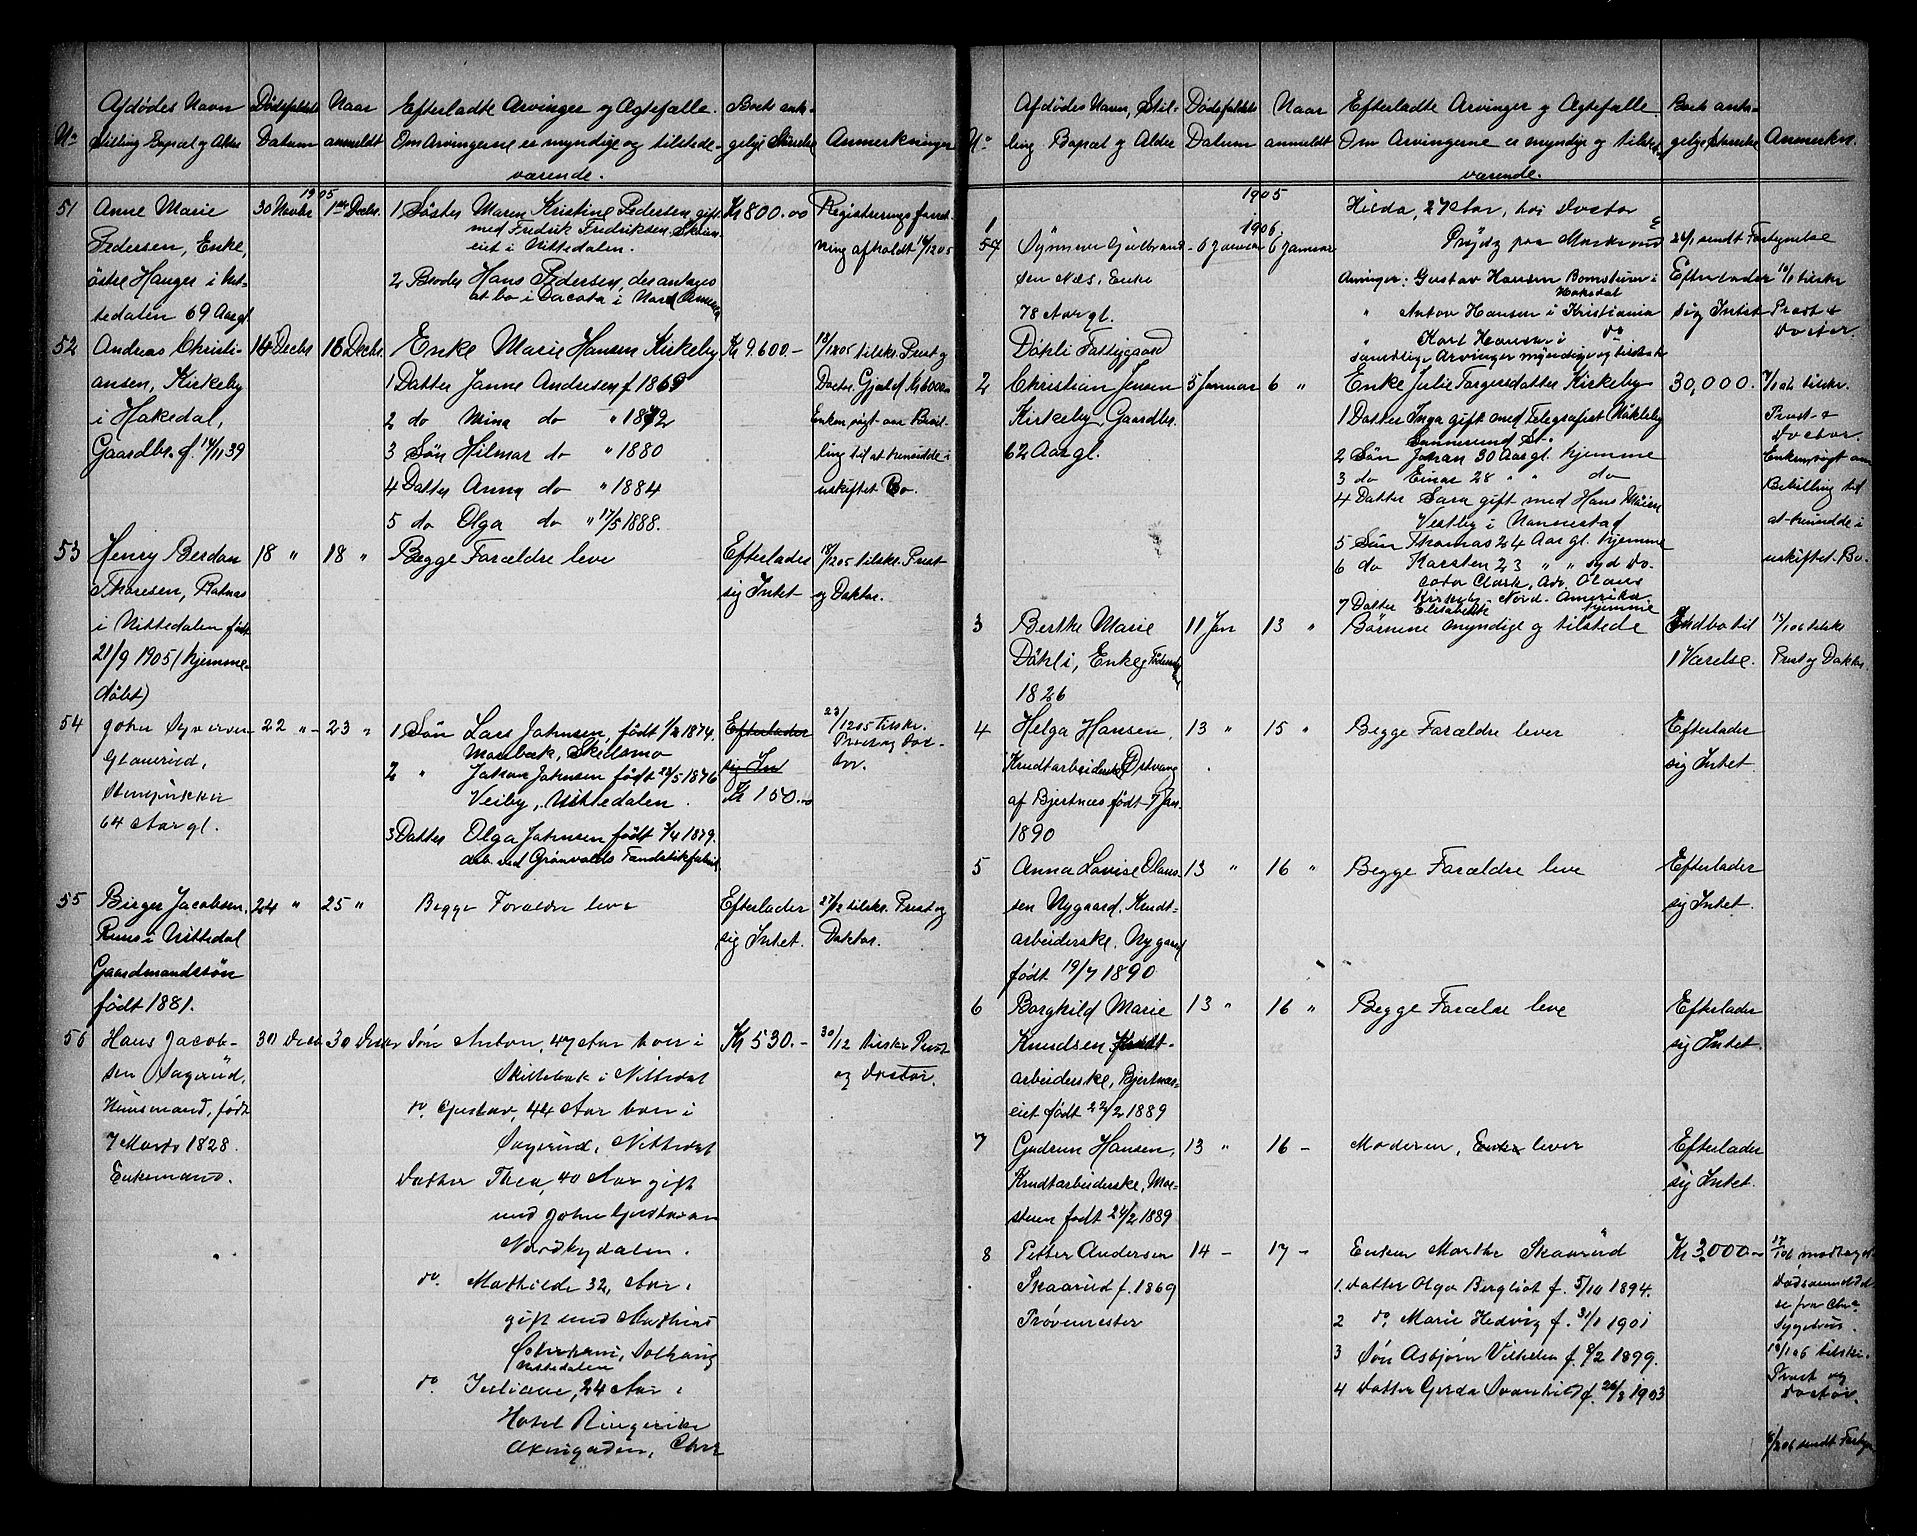 Afdødes Navn
Stilling Bopæl og Alder
Dødsfaldets
Datum
Naar
anmeldt
Efterladte Arvinger og Ægtefælle.
Om Arvingerne er myndige og tilstede-
værende.
Boets anta-
gelige Størrelse
Anmerkninger
No
1905
51
Anne Marie
Pedersen, Enke,
østre Hauger i Nit-
tedalen 69 Aar gl.
30 Novbr
1ste Decbr.
1 Søster Maren Kristine Pedersen, gift
med Fredrik Fredriksen
eiet i Nittedalen.
2 Broder Hans Pedersen, der antages
at bo i Dacota i Nord Amerika
Kr 800.00
Registreringsforret-
ning afholdt
52
Andreas Christi-
ansen, Kirkeby
i Hakedal,
Gaardbr. f. 14/11 39
16 Decbr.
Enke Marie Hansen Kirkeby
1 Datter Janne Andersen f 1869
2 do Mina do " 1872
3 Søn Hilmar do " 1880
4 Datter Anna do " 1884
5 do Olga do " 17/5 1888.
Kr 9.600.-
tilskr. Prest og
Doctor. Gjæld
Enken søgt om Bevil-
ling til at hensidde i
uskiftet Bo.
53
Henry Berdan
Thoresen, Rotnes
i Nittedalen født
21/9 1905 (hjemme-
døbt)
18 "
18 "
Begge Forældre leve
Efterlader
sig Intet
18/12 05 tilskr. Prest
og Doktor.
54
Johan Syversen
64 Aar gl.
22 "
23 "
1 Søn Lars Johnsen, født 1/2 1874.
Skedsmo
2 " Johan Johnsen født 28/5 1876
Veiby, Nittedalen.
3 Datter Olga Johnsen født 3/4 1879.
arb. ved Grønvolds Tændstikfabrik
Efterlader
sig In
Kr 150.00
23/12 05 Tilskr.
Prest og Doc-
tor.
55
Birger Jacobsen,
i Nittedal
Gaardmandssøn
født 1881.
24 "
25 "
Begge Forældre leve
Efterlader
sig Intet.
27/12 tilskr. Prest og
Doktor.
56
Hans Jacob-
sen Sagerud,
Husmand, født
7 Marts 1828.
Enkemand.
30 Decbr
30 Decbr
Søn Anton, 47 Aar bor i
Skillebæk i Nittedal
do. Gustav, 44 Aar bor i
Sagerud, Nittedal
Datter Thea, 40 Aar gift
med Johan Gustavsen
Nordbydalen.
do. Mathilde 32, Aar.
gift med Mathias
Solhaug
Nittedalen
do. Juliane, 24 Aar i
Hotel Ringerike
Akergaden, Chra
Kr 530.-
30/12 Tilskr Prest
og Doctor.
No
Afdødes Navn, Stil-
ling Bopæl og Alder
Dødsfaldets
Datum
Naar
anmeldt
Efterladte Arvinger og Ægtefælle
Om Arvingerne er myndige og tilstede-
værende.
Boets anta-
gelige Størrelse
Anmerkn.
1905
Hilda, 27 Aar, hos Doctor
1906
1
57
sen Næs, Enke
78 Aar gl.
Døhli Fattiggaard
6 Januar
6 Januar
Arvinger: Gustav Hansen i
Hakedal
" Anton Hansen i Kristiania
" Karl Hansen i do
samtlige Arvinger myndige og tilstede
Efterlader
sig Intet
sendt Fostyrelse
tilskr
Prest &
Doctor.
2
Christian Jensen
Kirkeby, Gaardbr.
62 Aar gl.
5 Januar
6 "
Enke Julie Torgersdatter Kirkeby
1 Datter Inga gift med Telegrafist Nökleby
St.
2 Søn Johan 30 Aar gl. hjemme
3 do Einar 28 " " do
4 Datter Sara gift med Hans
Vestby i Nannestad
5 Søn Thomas 24 Aar gl. hjemme
6 do Karsten 23 " " Syd Da-
cota Clark, Adr. Olaus
Kirkeby Nord-Amerika
7 Datter Elisabeth hjemme
30,000.
7/1 06 tilskr.
Prest &
Doctor.
Enken søgt om
Bevilling til
at hensidde i
uskiftet Bo.
3
Berthe Marie
Døhli, Enke,
1826
11 Jan
13 "
Børnene myndige og tilstede
Indbo til
1 Værelse.
13/1 06 tilskr
Prest og Doktor
4
Helga Hansen,
Krudtarbeiderske, Østvang
af Bjertnæs født 7 Jan.
1890
13 "
15 "
Begge Forældre lever
Efterlader
sig Intet.
5
Anna Lovise Olaus-
sen Nygaard, Krudt-
arbeiderske, Nygaard
født 19/7 1890
13 "
16 "
Begge Forældre leve
Efterlader
sig Intet.
6
Borghild Marie
Knudsen Krudt-
arbeiderske, Bjertnæs-
eiet født 22/2 1889
13 "
16 "
Begge Forælre leve
Efterlader
sig Intet.
7
Gudrun Hansen,
Krudtarbeiderske, Mo-
steen født 24/2 1889
13 "
16 -
Moderen, Enke lever
Efterlader
sig Intet.
8
Petter Andersen
Skaarud f. 1869
Prøvemester
14 -
17 -
Enken Marthe Skaarud
1. Datter Olga Bergliot f. 5/10 1894.
2 do. Marie Hedvig f. 31/1 1901
3 Søn Asbjørn Vilhelm f. 9/2 1899.
4 Datter Gerda Svanhild f. 26/8 1903
Kr 3,000.-
17/1 06 modtaget
Dødsanmeldel-
se fra Chra
Sygehus.
18/1 06 tilskr.
Prest og
Doctor.